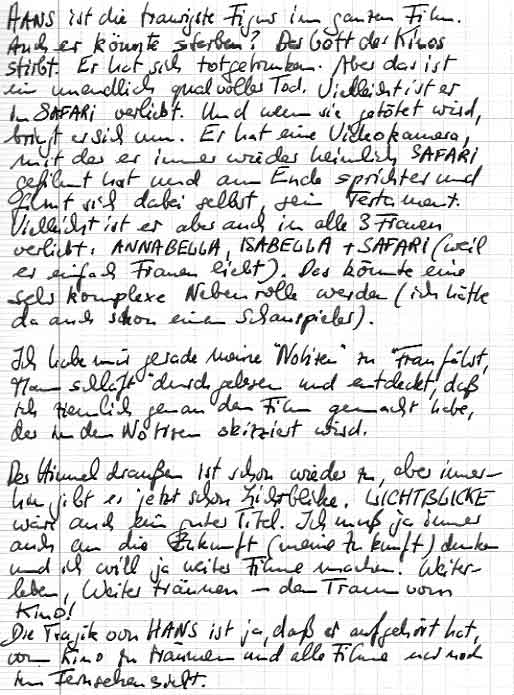 HANS ist die traurigste Figur im ganzen Film.
Auch er könnte sterben? Der Gott des Kinos
stirbt. Er hat sich totgetrunken. Aber das ist
ein unendlich qualvoller Tod. Vielleicht ist er
in SAFARI verliebt. Und wenn sie getötet wird,
bringt er sich um. Er hat eine Videokamera,
mit der er immer wieder heimlich SAFARI
gefilmt hat und am Ende spricht er und
filmt sich dabei selbst, sein Testament.
Vielleicht ist er aber auch in alle 3 Frauen
verliebt: ANNABELLA, ISABELLA + SAFARI (weil
er einfach Frauen liebt). Das könnte eine
sehr komplexe Nebenrolle werden (ich hätte
da auch schon einen Schauspieler).
Ich habe mir gerade meine "Notizen" zu "Frau fährt,
Mann schläft" durchgelesen und entdeckt, daß
ich ziemlich genau den Film gemacht habe,
der in den Notizen skizziert wird.
Der Himmel draußen ist schon wieder zu, aber immer-
hin gibt es jetzt schon Lichtblicke. LICHTBLICKE
wär auch ein guter Titel. Ich muß ja immer
auch an die Zukunft (meine Zukunft) denken
und ich will ja weiter Filme machen. Weiter-
leben, Weiter träumen – den Traum vom
Kino!
Die Tragik von HANS ist ja, daß er aufgehört hat,
vom Kino zu träumen und alle Filme nur noch
im Fernsehen sieht.